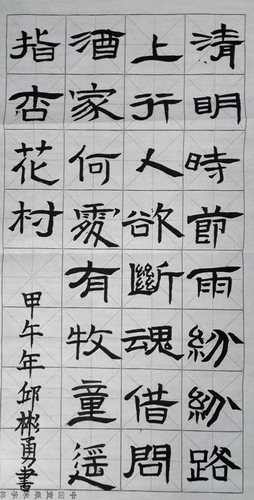 清明時節雨紛紛路
上行人欲斷魂借問
酒家何處有牧童遥
指杏花村
甲午年邱彬勇書